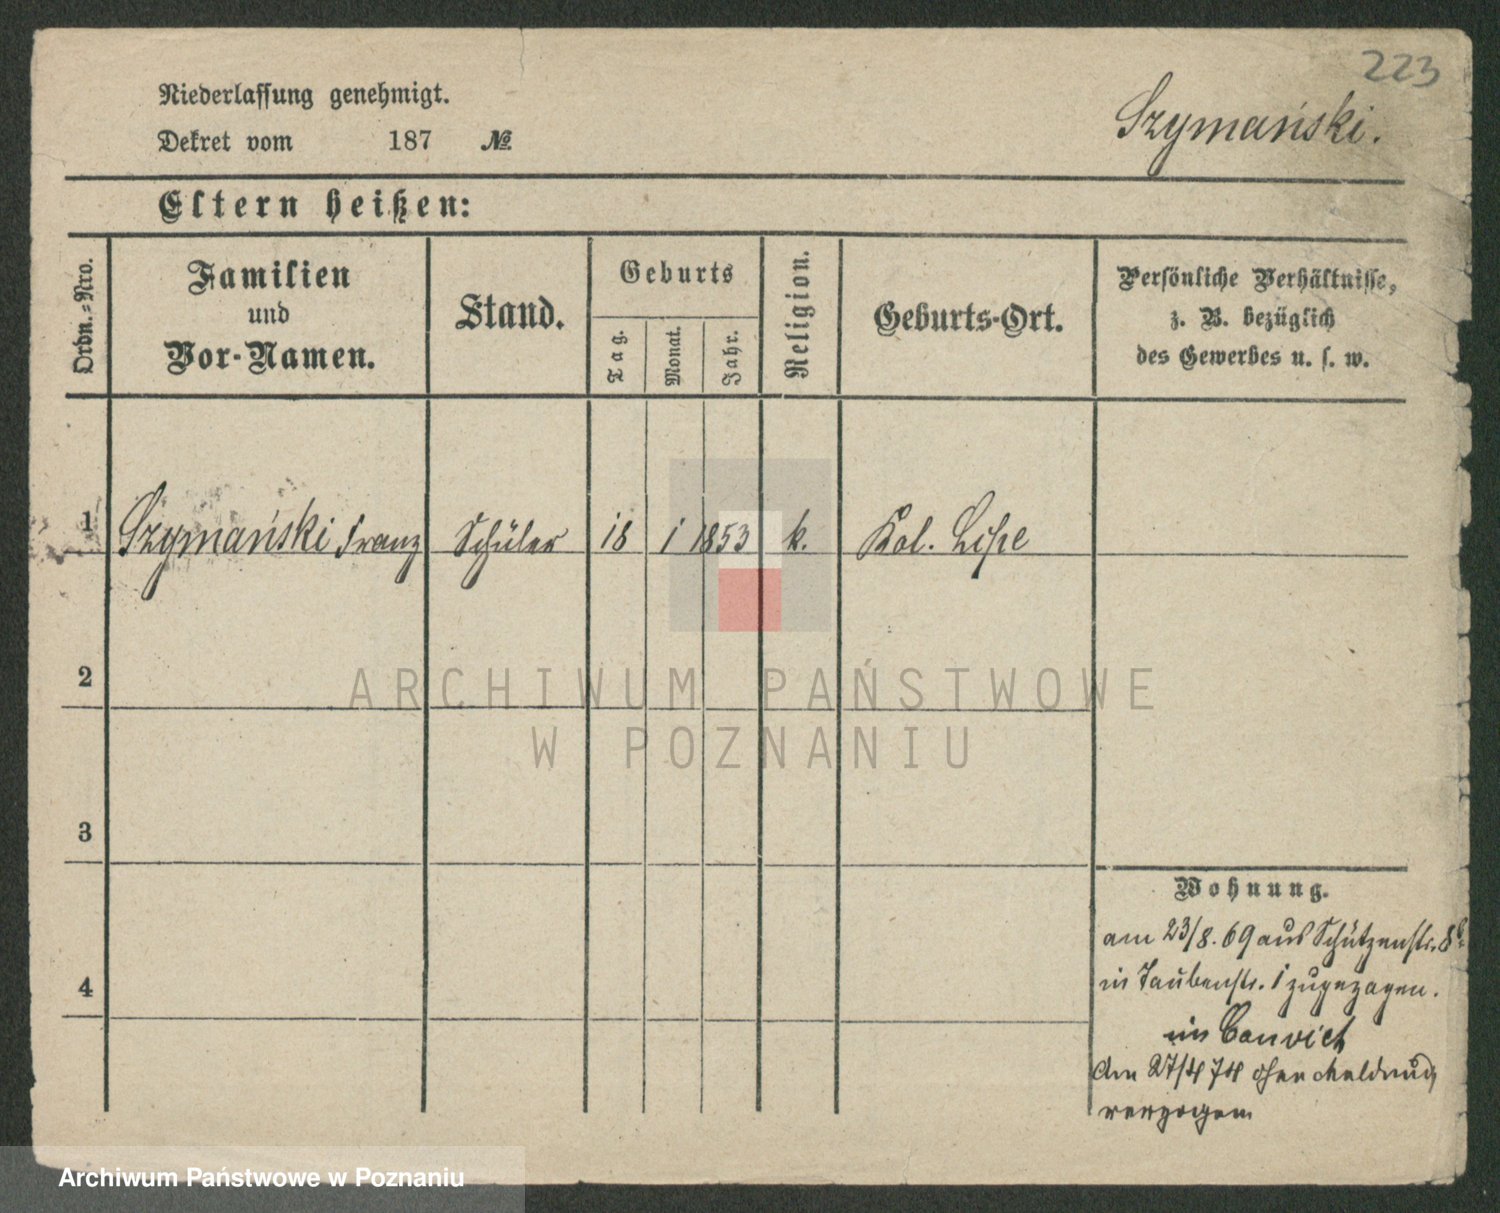 223
Niederlassung genehmigt.
Szymański.
Dekret vom 187 №
Eltern heißen:
Ordn.-Nro.
Familien
und
Vor-Namen.
Stand.
Geburts
Tag.
Monat.
Jahr.
Religion.
Geburts-Ort.
Persönliche Verhältnisse,
z. B. bezüglich
des Gewerbes u. s. w.
1 Szymański Franz Schüler 18 1 1853 k. Kol.
2
ARCHIWUM PAŃSTWOWE
W POZNANIU
3
Wohnung.
am 23/8. 69 aus Schützenstr. 8
4
in Taubenstr. 1 zugezogen.
im Convict
Am 27/4 74 ohne Meldung
verzogen
Archiwum Państwowe w Poznaniu